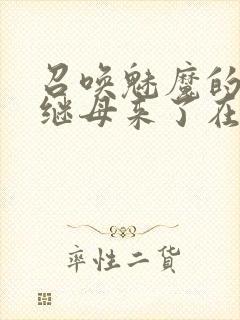 召唤魅魔的
继母来了在
率性二货